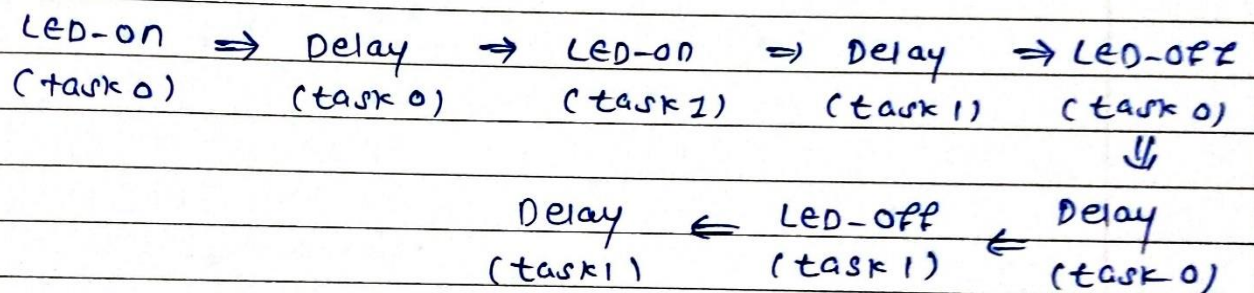 LED-on ⇒ Delay ⇒ LED-on ⇒ Delay ⇒ LED-off
(task 0) (task 0) (task 1) (task 1) (task 0)
⇓
Delay ⇐ LED-off ⇐ Delay
(task 1) (task 1) (task 0)